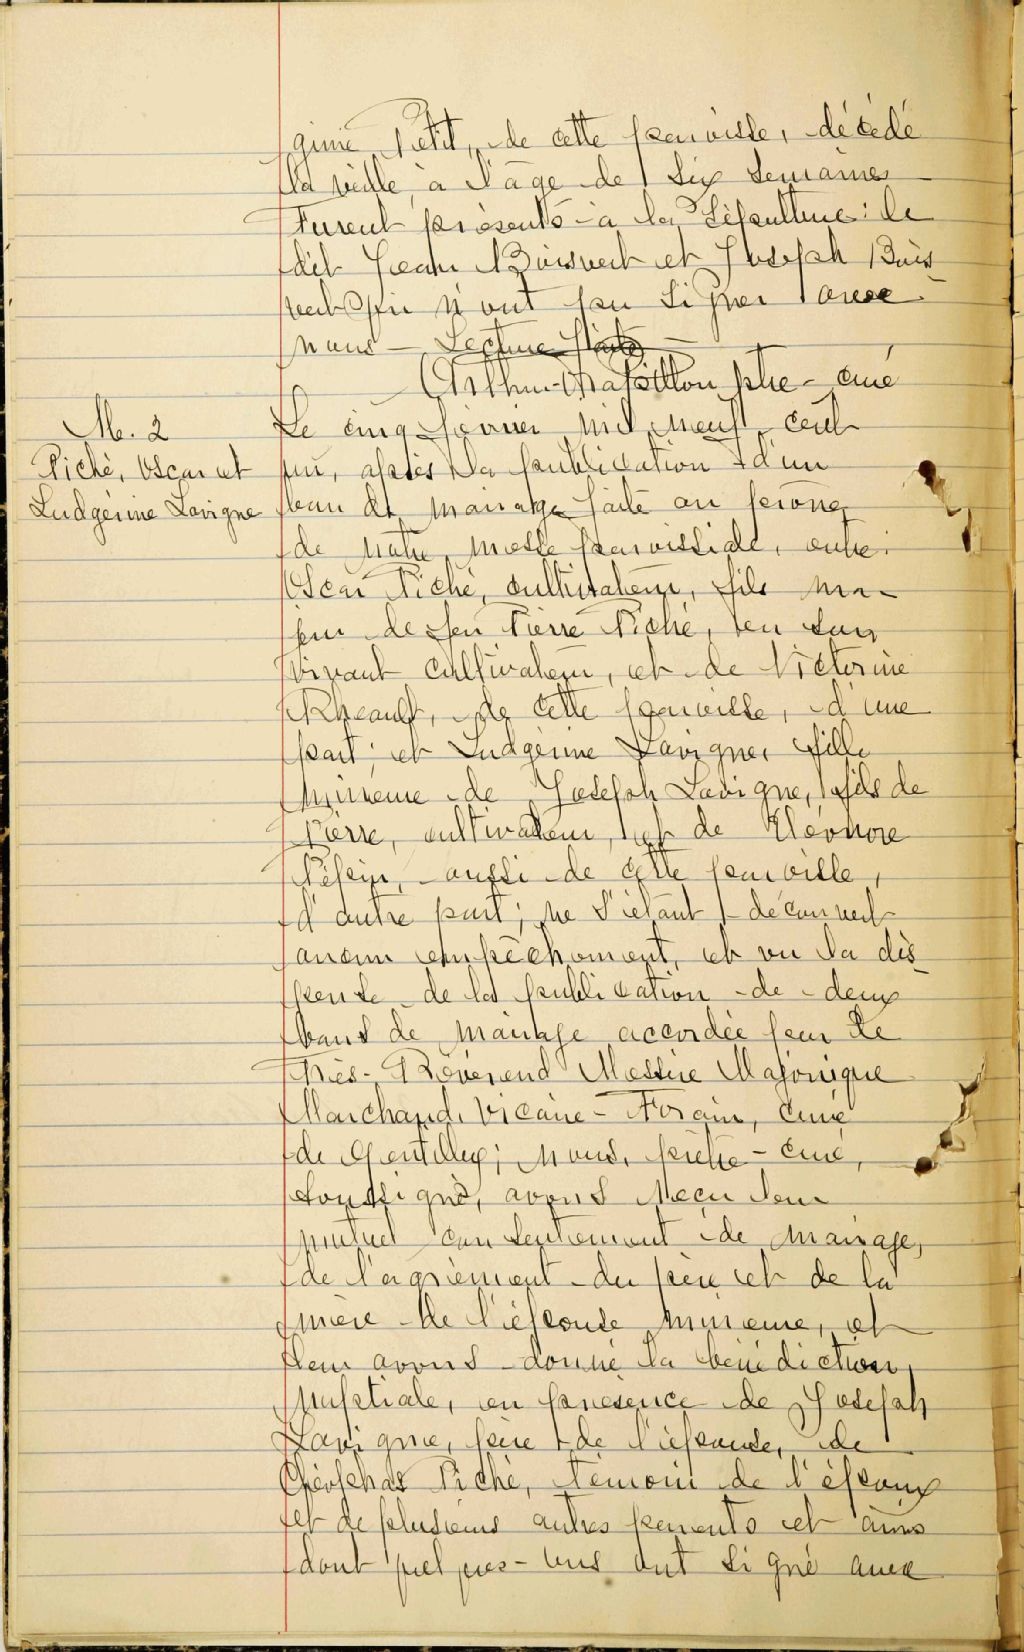 gine Petit, de cette paroisse, décédé
la veille, à l'âge de six semaines
Furent présents à la sépulture: le
dit Jean Boisvert et Joseph Bois
vert qui n'ont pu signer avec
nous - Lecture faite
ptre - curé
M. 2
Piché, Oscar et
Ludgérine Lavigne
Le cinq février mil neuf cent
un, après la publication d'un
ban de mariage faite au prône
de notre messe paroissiale, entre:
Oscar Piché, cultivateur, fils ma-
jeur de feu Pierre Piché, en son
vivant cultivateur, et de Victorine
Rheault, de cette paroisse, d'une
part; et Ludgérine Lavigne, fille
mineure de Joseph Lavigne, fils de
Pierre, cultivateur, et de Eléonore
Pépin, aussi de cette paroisse,
d'autre part; ne s'étant découvert
aucun empêchement, et vu la dis-
pense de la publication de deux
bans de mariage accordée par le
Très-Révérend Messire Majorique
Marchand, Vicaire-Forain, curé
de Gentilly; nous, prêtre-curé,
soussigné, avons reçu leur
mutuel consentement de mariage,
de l'agrément du père et de la
mère de l'épouse mineure, et
leur avons donné la bénédiction
nuptiale, en présence de Joseph
Lavigne, père de l'épouse, de
Cléophas Piché, témoin de l'époux
et de plusieurs autres parents et amis
dont quelques-uns ont signé avec